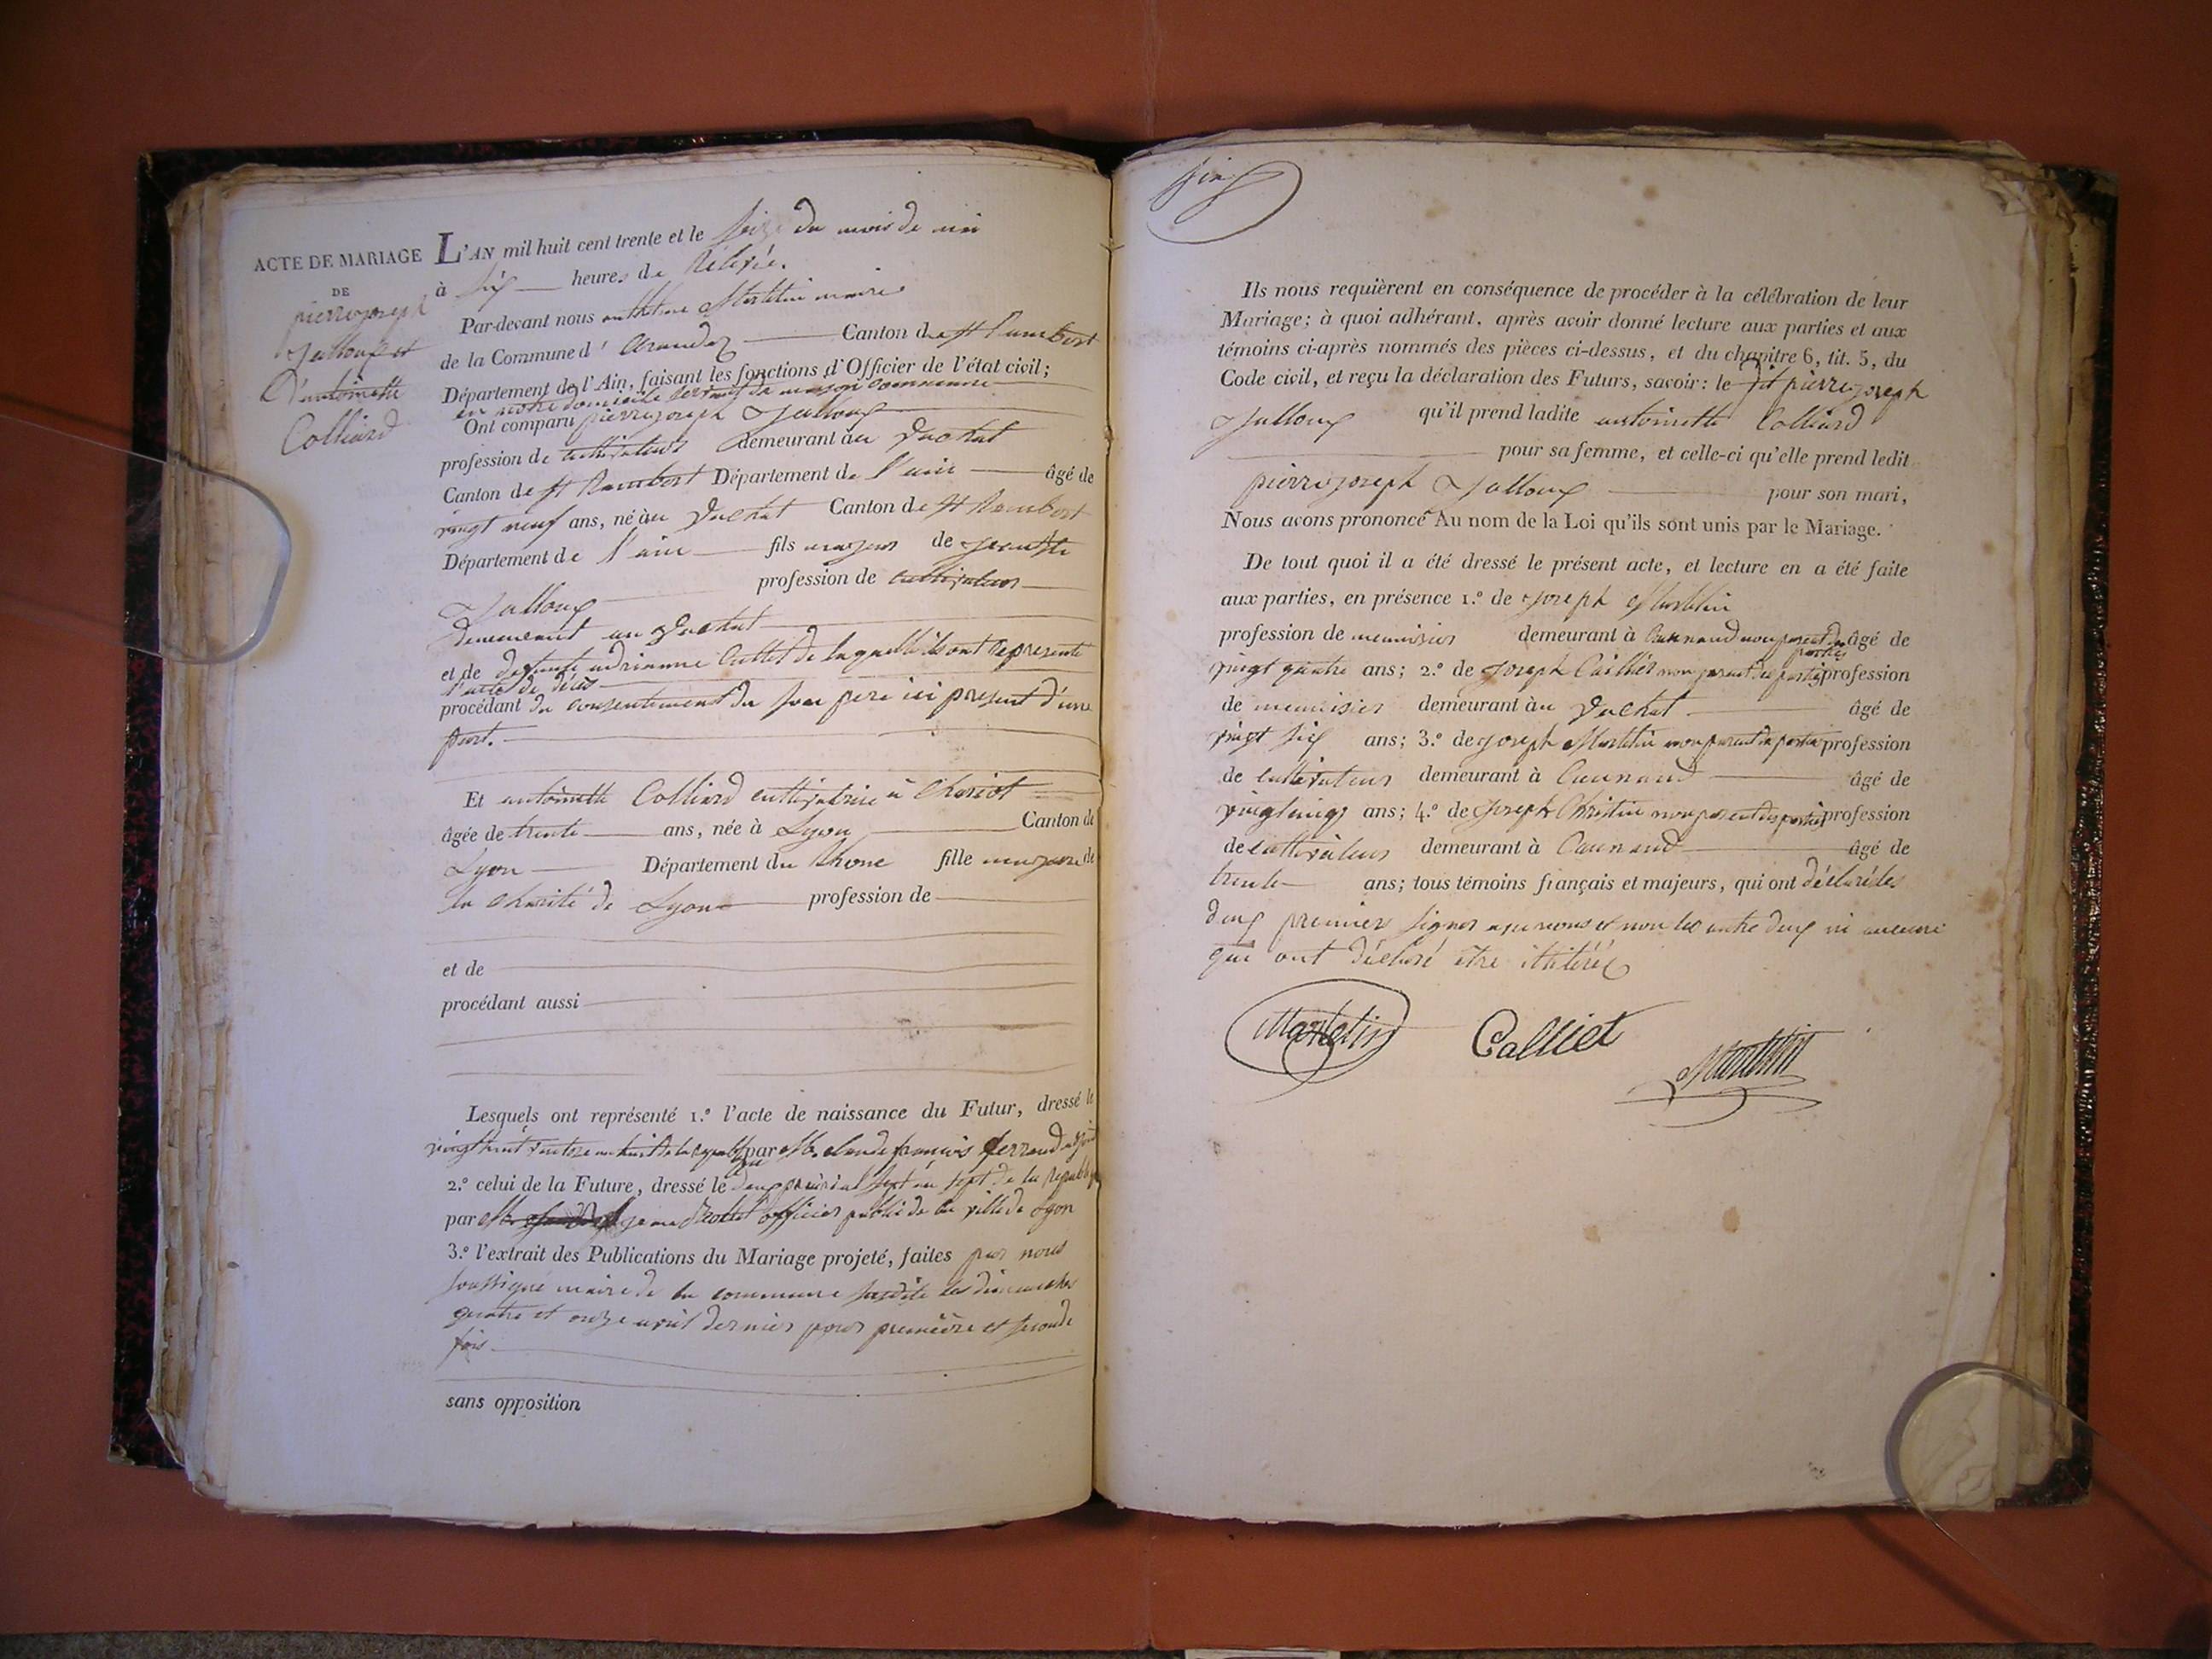 ACTE DE MARIAGE
DE
pierre joseph
Jalloux et
D'antoinette
Colliard
L'AN mil huit cent trente et le seize du mois de mai
à six heures de Relevée.
Par-devant nous anthelme Martelin maire
de la Commune d'Arandaz Canton de St Rambert
Département de l'Ain, faisant les fonctions d'Officier de l'état civil;
en notre domicile servant de maison commune
Ont comparu pierre joseph Jalloux
profession de cultivateur demeurant au
Canton de St Rambert Département de l'ain âgé de
vingt neuf ans, né au Canton de St Rambert
Département de l'ain fils majeur de
Jalloux profession de cultivateur
demeurant au
et de defunte adrianne de laquelle ils ont representé
l'acte de décès
procédant du consentement du son pere ici present d'une
part.
Et antoinette Colliard cultivatrice à
âgée de trente ans, née à Lyon Canton de
Lyon Département du Rhone fille majeure de
la charité de Lyon profession de
et de
procédant aussi
Lesquels ont représenté 1.º l'acte de naissance du Futur, dressé le
vingt huit ventose an huit de la par M. claude francois ferrand adjoint
2.º celui de la Future, dressé le prairial an sept de la republique
par M. officier public de la ville de Lyon
3.º l'extrait des Publications du Mariage projeté, faites par nous
soussigné maire de la commune susdite les dimanches
quatre et onze avril dernier pour première et seconde
fois
sans opposition
Ils nous requièrent en conséquence de procéder à la célébration de leur
Mariage; à quoi adhérant, après avoir donné lecture aux parties et aux
témoins ci-après nommés des pièces ci-dessus, et du chapitre 6, tit. 5, du
Code civil, et reçu la déclaration des Futurs, savoir: le dit pierre joseph
Jalloux qu'il prend ladite antoinette Colliard
pour sa femme, et celle-ci qu'elle prend ledit
pierre joseph Jalloux pour son mari,
Nous avons prononcé Au nom de la Loi qu'ils sont unis par le Mariage.
De tout quoi il a été dressé le présent acte, et lecture en a été faite
aux parties, en présence 1.º de Joseph Martelin
profession de menuisier demeurant à non parent des parties âgé de
vingt quatre ans; 2.º de Joseph Calliet non parent des parties profession
de menuisier demeurant au âgé de
vingt six ans; 3.º de Joseph Martelin non parent des parties profession
de cultivateur demeurant à âgé de
vingt cinq ans; 4.º de Joseph Christin non parent des parties profession
de cultivateur demeurant à âgé de
trente ans; tous témoins français et majeurs, qui ont déclaré les
deux premiers signer avec nous et non les autre deux ni
qui ont déclaré etre
Martelin
Calliet
Martelin